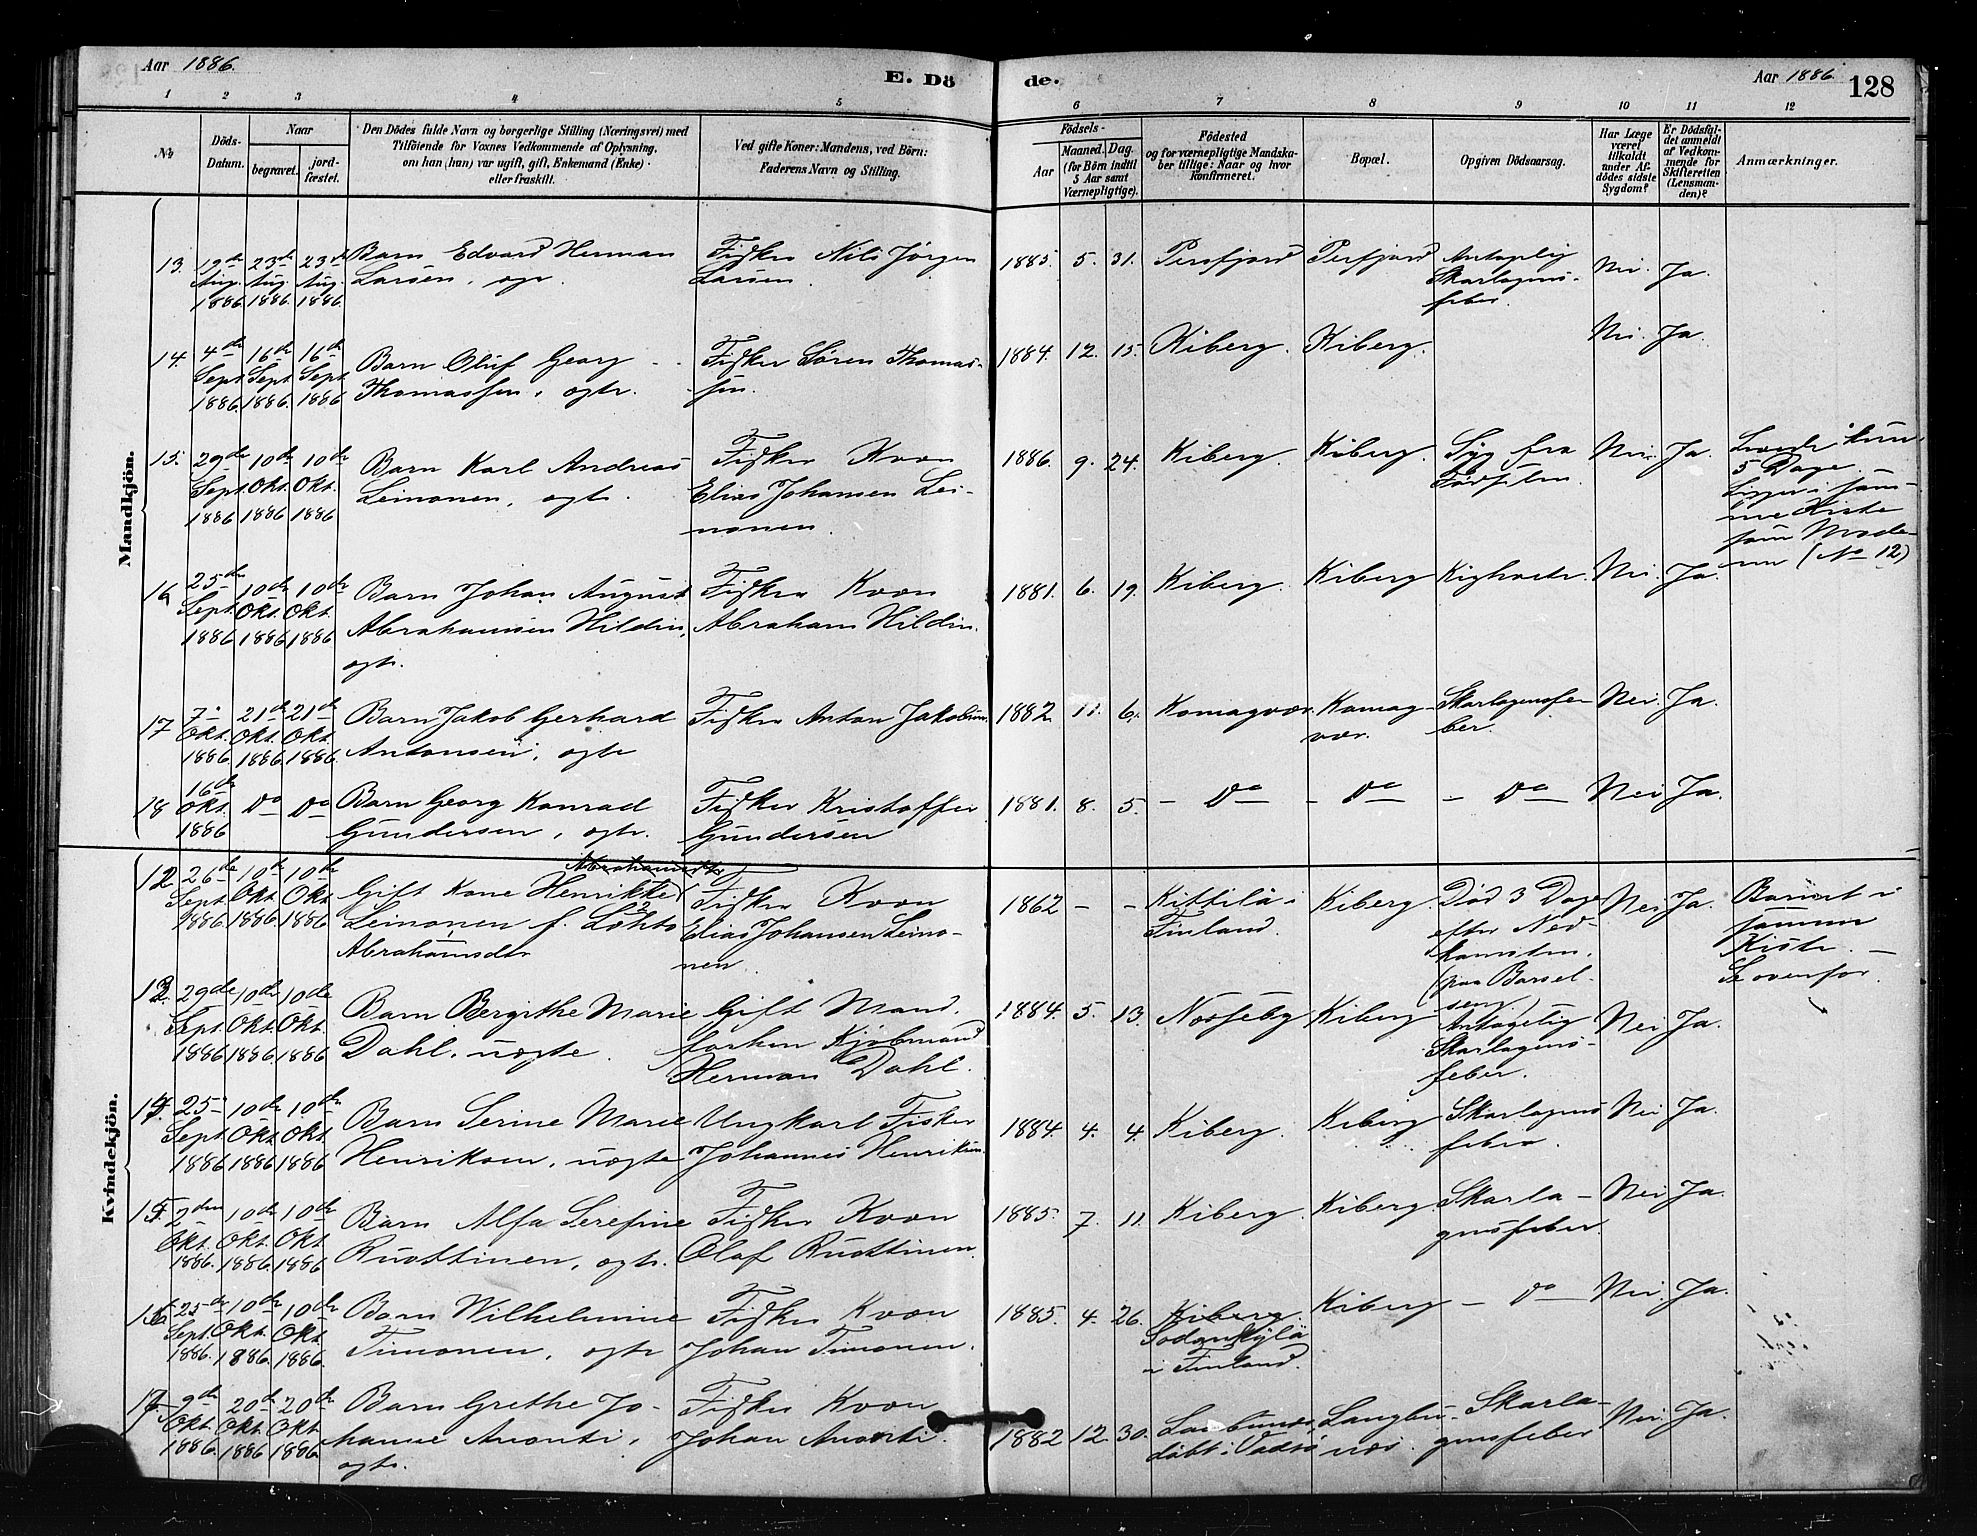 Aar 1886.
E. Dö de.
Aar 1886 128
1 2 3 4 5 6 7 8 9 10 11 12
No
Döds-
Datum.
Naar
begravet.
jord-
fæstet.
Den Dödes fulde Navn og borgerlige Stilling (Næringsvei) med
Tilföiende for Voxnes Vedkommende af Oplysning,
om han (hun) var ugift, gift, Enkemand (Enke)
eller fraskilt.
Ved gifte Koner: Mandens, ved Börn:
Faderens Navn og Stilling.
Födsels-
Aar
Maaned. Dag.
(for Börn indtil
5 Aar samt
Værnepligtige).
Födested
og for værnepligtige Mandska-
ber tillige: Naar og hvor
konfirmeret.
Bopæl.
Opgiven Dödsaarsag.
Har Læge
været
tilkaldt
under Af-
dödes sidste
Sygdom?
Er Dödsfal-
det anmeldt
af Vedkom-
mende for
Skifteretten
(Lensman-
den)?
Anmærkninger.
Mandkjön.
13. 19de Aug. 1886 23de Aug. 1886. 23de Aug. 1886
Barn Edvard Herman
Larsen, ogte.
Fisker Nils Jørgen
Larsen.
1885. 5. 31. Persfjord Persfjord
Antagelig
Skarlagens-
feber.
Nei. Ja.
14. 4de Sept. 1886. 16de Sept. 1886. 16de Sept. 1886
Barn Oluf Georg
Thomassen, ogte.
Fisker Søren Thomas-
sen.
1884. 12. 15. Kiberg. Kiberg. Nei. Ja.
15. 29de Sept. 1886 10de Okt. 1886 10de Okt. 1886
Barn Karl Andreas
Leinonen, ogte.
Fisker Kvæn
Elias Johansen Lei-
nonen.
1886. 9. 24. Kiberg. Kiberg.
Syg fra
Fødselen.
Nei. Ja.
Levede kun
5 Dage.
Ligger i sam-
me Kiste
som Mode-
ren (No 12)
16 25de Sept. 1886 10de Okt. 1886 10de Okt. 1886
Barn Johan August
Abrahamsen Hildin,
ogte.
Fisker Kvæn
Abraham Hildin.
1881. 6. 19. Kiberg. Kiberg Kighoste. Nei. Ja.
17 7de Okt. 1886. 21de Okt. 1886. 21de Okt. 1886.
Barn Jakob Gerhard
Antonsen, ogte
Fisker Anton Jakobsen.
1882. 11. 6. Komagvær. Komag-
vær.
Skarlagensfe-
ber.
Nei. Ja.
18 16de Okt. 1886 Do Do
Barn Georg Konrad
Gundersen, ogte.
Fisker Kristoffer
Gundersen
1881. 8. 5. - Do - - Do - - Do - Nei Ja.
Kvindekjön.
12 26de Sept. 1886. 10de Okt. 1886. 10de Okt. 1886
Abrahamsdtr
Gift Kone Henrikke
Leinonen f. Lohto
Abrahamsdtr
Fisker Kvæn
Elias Johansen Leino-
nen.
1862 - - Kittilä i
Finland.
Kiberg.
Død 3 Dage
efter Ned-
komsten.
(paa Barsel-
seng)
Nei Ja.
Barnet i
samme
Kiste.
Se ovenfor
13. 29de Sept. 1886 10de Okt. 1886. 10de Okt. 1886
Barn Bergithe Marie
Dahl. uægte.
Gift Mand,
forhen Kjøbmand
Herman Dahl.
1884. 5. 13. Nesseby Kiberg
Antagelig
Skarlagens-
feber.
Nei Ja.
14. 25 Sept. 1886 10de Okt. 1886 10de Okt. 1886
Barn Serine Marie
Henriksen, uægte
Ungkarl Fisker
Johannes Henriksen.
1884. 4. 4. Kiberg. Kiberg
Skarlagens
feber.
Nei Ja.
15. 2den Okt. 1886. 10de Okt. 1886. 10de Okt. 1886
Barn Alfa Serefine
Ruottinen, ogte.
Fisker Kvæn
Olaf Ruottinen.
1885. 7. 11. Kiberg. Kiberg.
Skarla-
gensfeber.
Nei. Ja.
16 25de Sept. 1886. 10de Okt. 1886. 10de Okt. 1886.
Barn Wilhelmine
Timonen, ogte
Fisker Kvæn
Johan Timonen.
1885. 4. 26. Kiberg.
Sodankylä
i Finland.
Kiberg - Do - Nei. Ja.
17. 9de Okt. 1886. 20de Okt. 1886 20de Okt. 1886.
Barn Grethe Jo-
hanne Anonti,
ogte.
Fisker Kvæn
Johan Anonti.
1882 12. 30.
døbt i Vadsø
Langbu-
næs.
Skarla-
gensfeber
Nei. Ja.